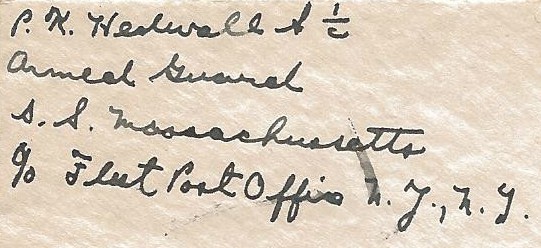 P. K. Hedwall S 1/c
Armed Guard
S. S. Massachussetts
c/o Fleet Post Office N. Y., N. Y.